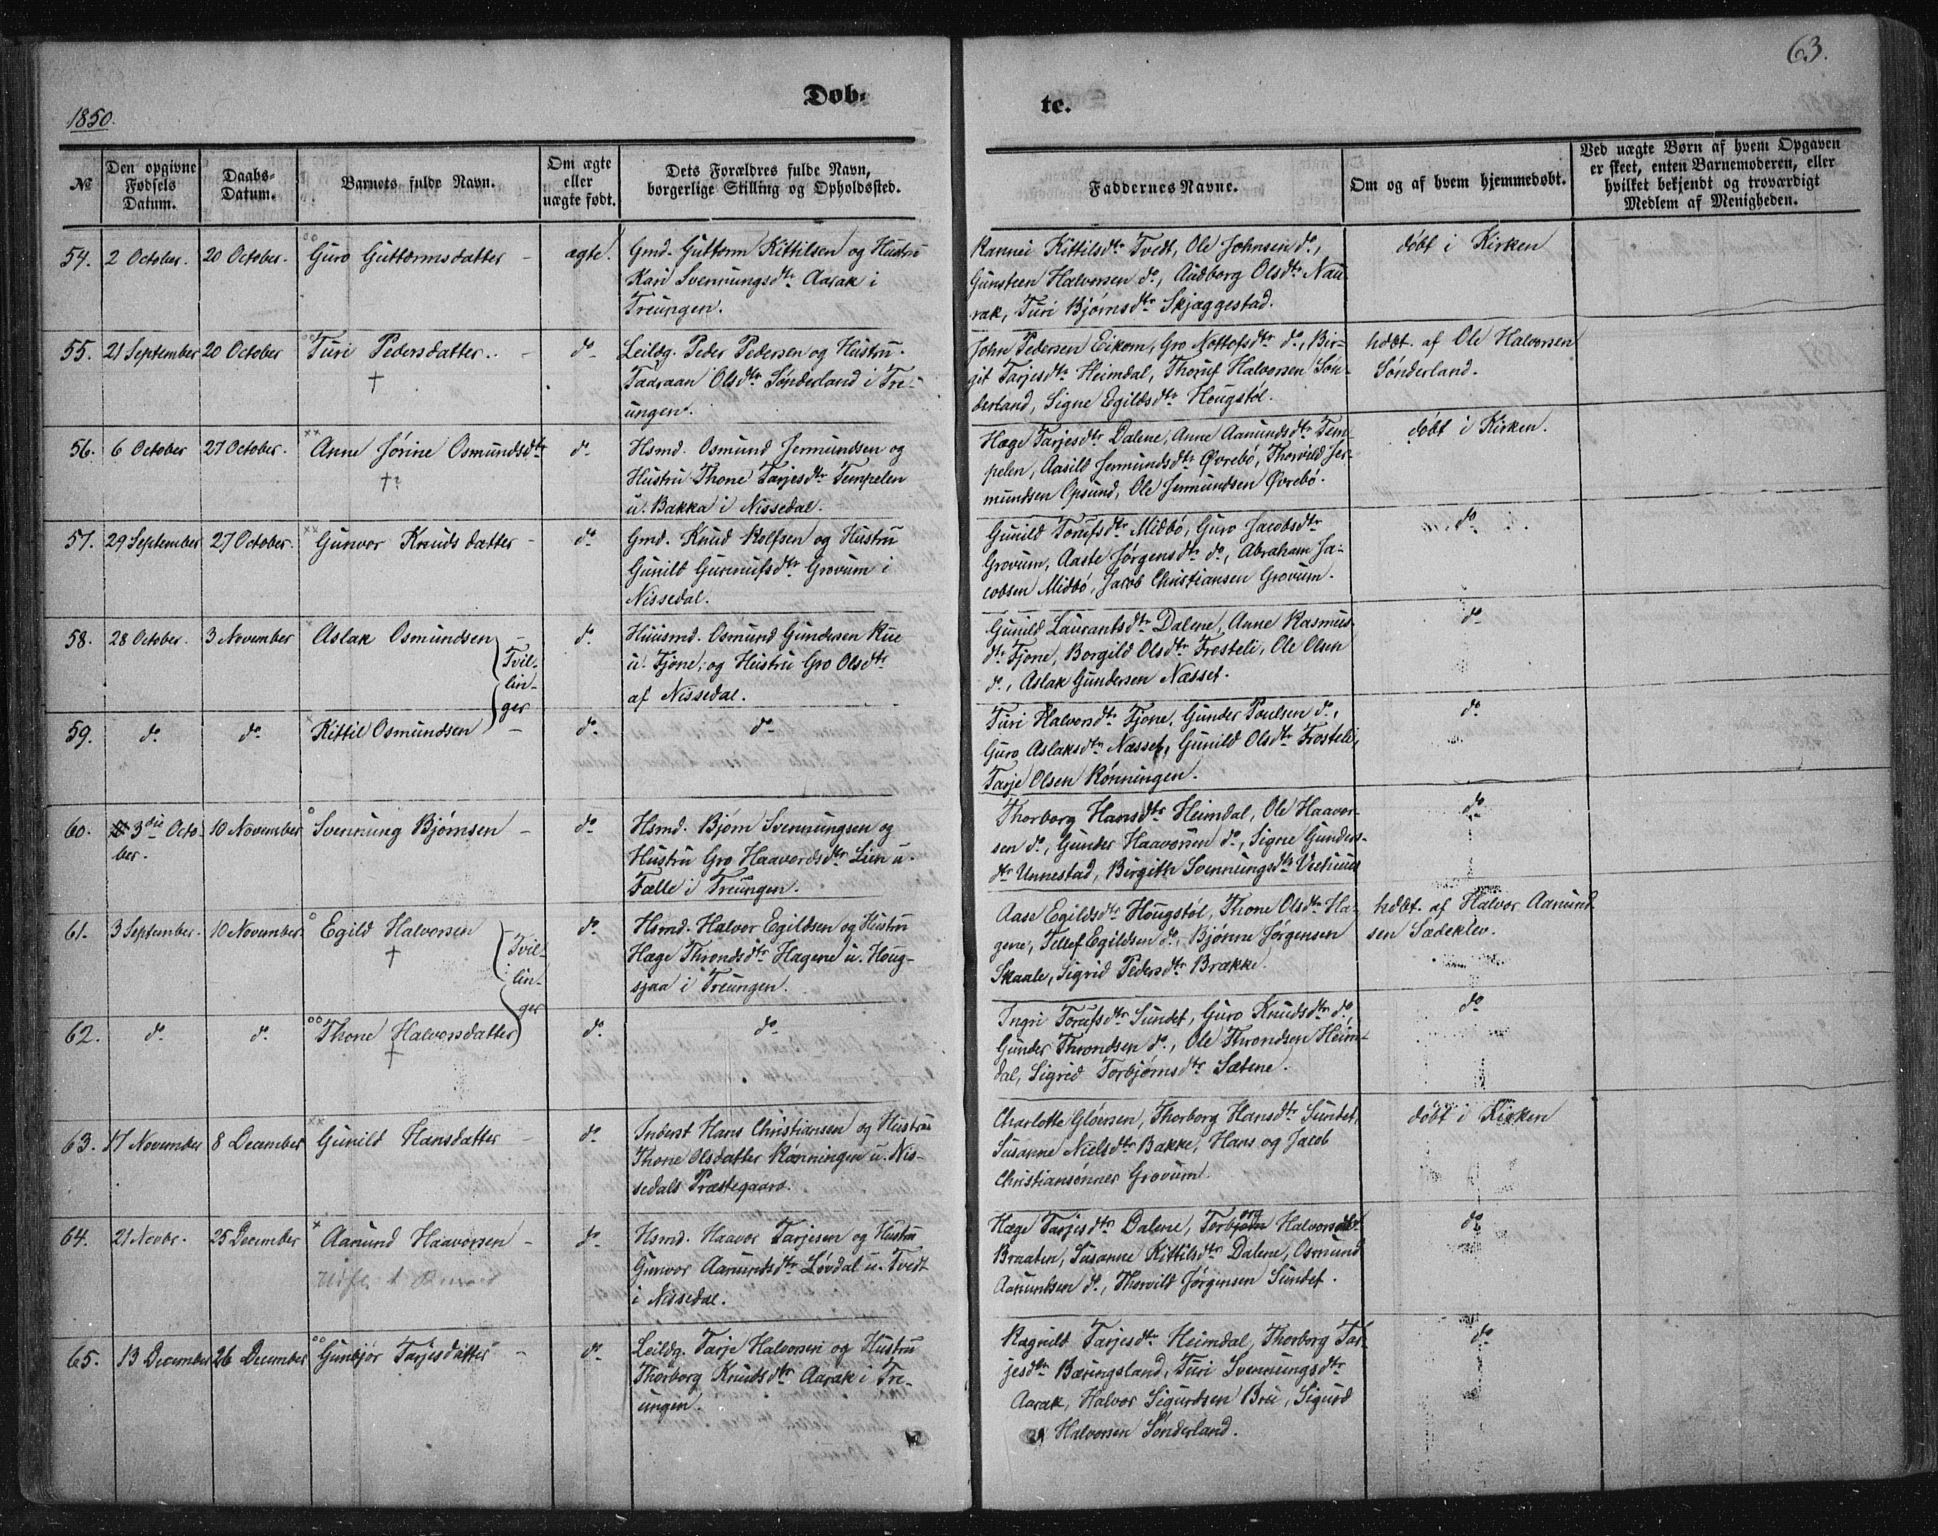 63.
Døb-
te.
1850.
№
Den opgivne
Fødsels
Datum.
Daabs-
Datum.
Barnets fulde Navn.
Om ægte
eller
uægte født.
Dets Forældres fulde Navn,
borgerlige Stilling og Opholdssted.
Faddernes Navne.
Om og af hvem hjemmedøbt.
Ved uægte Børn af hvem Opgaven
er skeet, enten Barnemoderen, eller
hvilket bekjendt og troværdigt
Medlem af Menigheden.
54. 2 October. 20 October. Guro Guttormsdatter - ægte.
Gmd. Guttorm Kittilsen og Hustru
Kari Svennungsdtr Aarak i
Treungen.
Rannei Kittilsdtr Tvedt, Ole Johnsen do,
Gunsteen Halvorsen do, Audborg Olsdtr Nau-
rak, Turi Bjørnsdtr Skjæggestad.
døbt i Kirken
55. 21 September 20 October Turi Pedersdatter. - do
†
Leildg. Peder Pedersen og Hustru
Taaraan Olsdtr Sønderland i Tre-
ungen.
John Pedersen Eikom, Gro Nottofsdtr do, Bir-
git Tarjesdtr Heimdal, Thoruf Halvorsen Søn-
derland, Signe Egildsdtr Hougstøl.
hdbt. af Ole Halvorsen
Sønderland.
56. 6 October 27 October. Anne Jørine Osmundsdtr do
†?
Hsmd. Osmund Jermundsen og
Hustru Thone Tarjesdtr Tempelen
u. Bakka i Nissedal.
Hæge Tarjesdtr Dalene, Anne Aanundsdtr Tem-
pelen, Aasild Jermundsdtr Øvrebø, Thorvild Jer-
mundsen Opsund, Ole Jermundsen Øvrebø.
døbt i Kirken.
57. 29 September 27 October. Gunvor Knudsdatter - do
Gmd. Knud Rolfsen og Hustru
Gunild Gunnufsdtr Grovum i
Nissedal.
Gunild Torufsdtr Midbø, Guro Jacobsdtr
Grovum, Aaste Jørgensdtr do, Abraham Ja-
cobsen Midbø, Jacob Christiansen Grovum.
do
58. 28 October. 3 November Aslak Osmundsen do
Tvil-
lin-
ger
Huusmd. Osmund Gundersen Rue
u. Fjone, og Hustru Gro Olsdtr
af Nissedal.
Gunild Laurantsdtr Dalene, Anne Rasmus-
dtr Fjone, Borgild Olsdtr Frosteli, Ole Olsen
do, Aslak Gundersen Næsset.
do
59. do do Kittil Osmundsen - do do
Turi Halvorsdtr Fjone, Gunder Poulsen do,
Guro Aslaksdtr Næsset, Gunild Olsdtr Frosteli,
Tarje Olsen Rønningen.
do
60. 3die Octo- 10 November Svennung Bjørnsen - do
ber.
Hsmd. Bjørn Svennungsen og
Hustru Gro Haavordsdtr Lien u.
Fælle i Treungen.
Thorborg Hansdtr Heimdal, Ole Haavor-
sen do, Gunder Haavorsen do, Signe Gunders-
dtr Unnestad, Birgith Svennungsdtr
do
61. 3 September. 10 November. Egild Halvorsen do
†
Tvil-
lin-
ger
Hsmd. Halvor Egildsen og Hustru
Hæge Throndsdtr Hagene u. Houg-
sjaa i Treungen.
Aase Egildsdtr Hougstøl, Thone Olsdtr Ha-
gene, Tellef Egildsen do, Bjønne Jørgensen
Skaale, Sigrid Pedersdtr Brække.
hdbt. af Halvor Aanund-
sen Sædeklev.
62. do do Thone Halvorsdatter do do
†
Ingri Torufsdtr Sundet, Guro Knudsdtr do,
Gunder Throndsen do, Ole Throndsen Heim-
dal, Sigrid Torbjørnsdtr Sætene.
do
63. 17 November 8 December Gunild Hansdatter - do
Inderst Hans Christiansen og Hustru
Thone Olsdatter Rønningen u. Nis-
sedals Præstegaard.
Charlotte Gløersen, Thorborg Hansdtr Sundet,
Susanne Nielsdtr Bakke, Hans og Jacob
Christiansønner Grovum.
døbt i Kirken
64. 21 Novbr. 25 December Aanund Haavorsen - do
Hsmd. Haavor Tarjesen og Hustru
Gunvor Aanundsdtr Løvdal u. Tvedt
i Nissedal.
Hæge Tarjesdtr Dalene, Torbjørn Halvorsdtr
Braaten, Susanne Kittilsdtr Dalene, Osmund
Aanundsen do, Thorvild Jørgensen Sundet.
do
65. 13 December 26 December Gunbjør Tarjesdatter - do
Leildg. Tarje Halvorsen og Hustru
Thorborg Knudsdtr Aarak i Tre-
ungen.
Ragnild Tarjesdtr Heimdal, Thorborg Tar-
jesdtr Bæringsland, Turi Svennungsdtr
Aarak, Halvor Sigurdsen Brii, Sigurd
Halvorsen Sønderland.
do